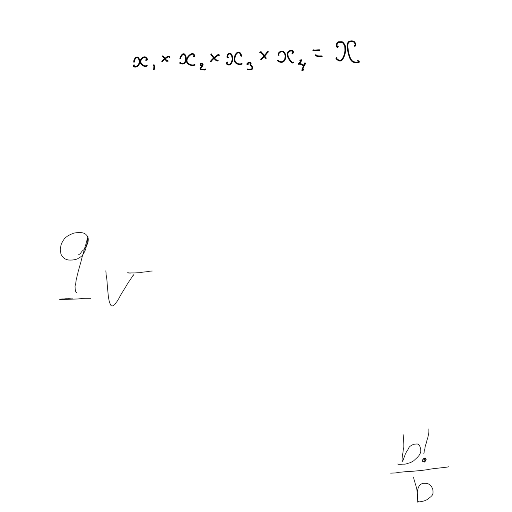 x₁ × x₂ × x₃ × x₄ = X
9 v
b!
b